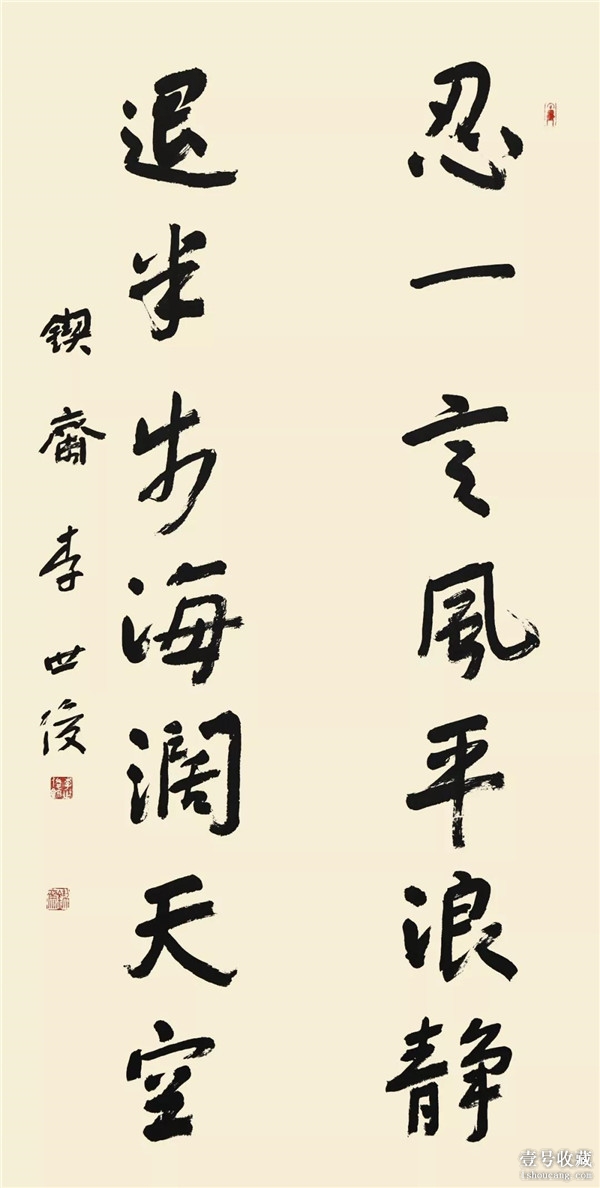 忍一言風平浪静
退半步海阔天空
鍥齋李世俊
壹号收藏
1shoucang.com